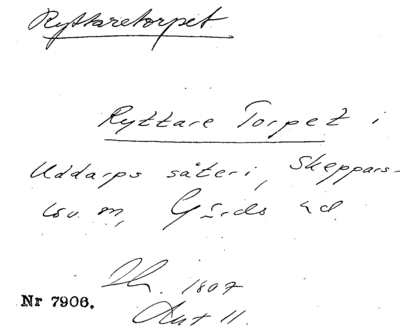 Ryttaretorpet
Ryttare Torpet i
Uddarps säteri, Skeppars-
löv m, Gärds hd
1807
Nr 7906.
11.